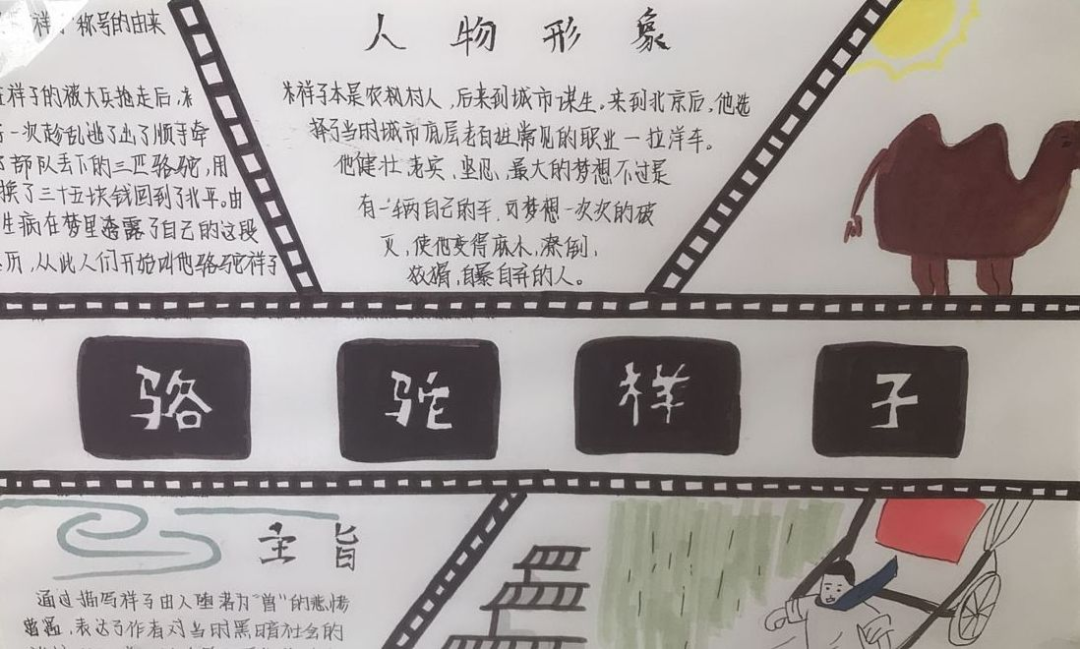 祥子称号的由来
在祥子的被大兵拖走后，
一次趁乱逃了出了顺手牵
部队丢下的三匹骆驼，用
换了三十五块钱回到了北平。由
生病在梦里透露了自己的这段
历，从此人们开始叫他骆驼祥子
人物形象
祥子本是农村人，后来到城市谋生。来到北京后，他选
择了当时城市底层老百姓常见的职业一拉洋车。
他健壮、老实、坚忍、最大的梦想不过是
有一辆自己的车，可梦想一次次的破
灭，使他变得麻木，潦倒，
狡猾，自暴自弃的人。
骆驼祥子
主旨
通过描写祥子由人堕落为“兽”的悲惨
遭遇，表达了作者对当时黑暗社会的